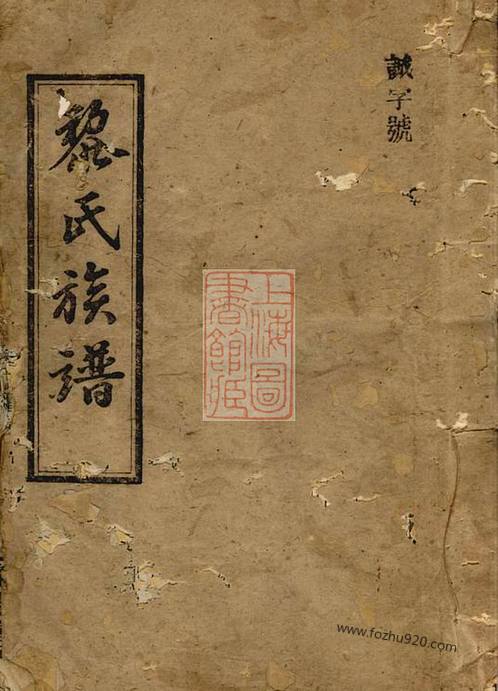 誠字號
黎氏族譜
上海圖
書館藏
www.fozhu920.com